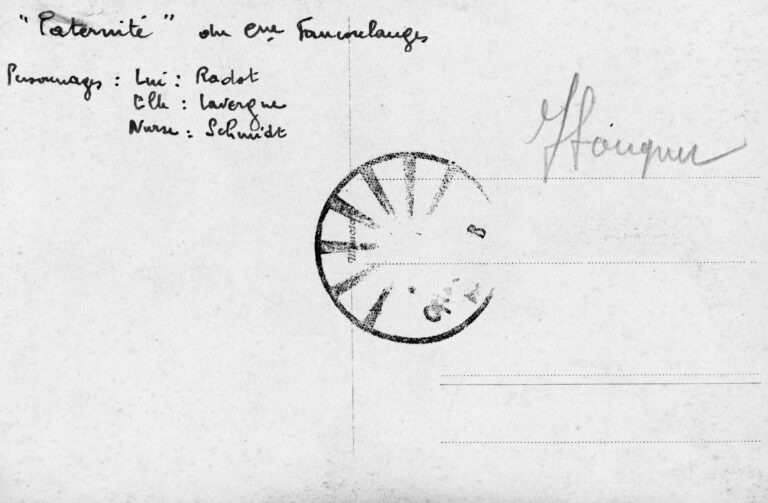 "Paternité" du Cne Fancoulanges
Personnages : Lui : Radot
Elle : Lavergne
Nurse : Schmidt